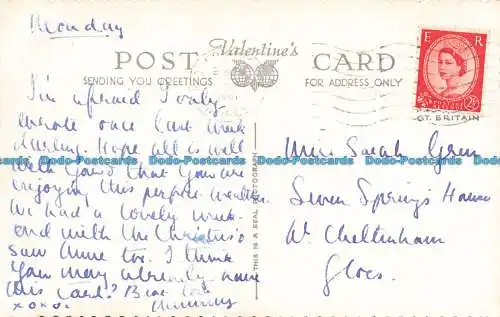 Monday
Valentine's
POST CARD
SENDING YOU GREETINGS FOR ADDRESS ONLY
E R
POSTAGE REVENUE
2½D
GT. BRITAIN
I'm afraid I only
wrote once last week
darling. Hope all is well
with you & that you are
enjoying this perfect weather.
We had a lovely week-
end with the
saw Anne too. I think
you may already have
this card? Best love
xoxo. Mummy
THIS IS A REAL PHOTOGRAPH
Miss Sarah Green
Seven Springs House
Nr. Cheltenham
Glos.
Dodo-Postcards Dodo-Postcards Dodo-Postcards Dodo-Postcards Dodo-Postcards
Dodo-Postcards Dodo-Postcards Dodo-Postcards Dodo-Postcards